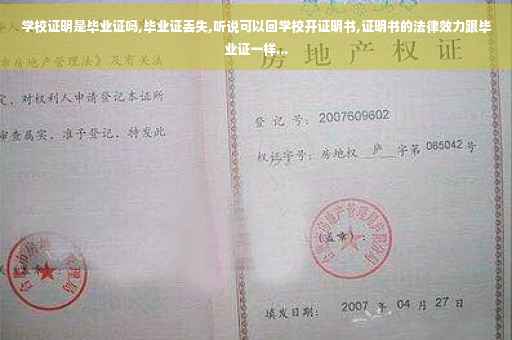 学校证明是毕业证吗,毕业证丢失,听说可以回学校开证明书,证明书的法律效力跟毕
业证一样...
房地产权证
市房地产管理法》及有关法
定，对权利人申请登记本证所
审查属实，准予登记，特发此
登记号：2007609602
权证字号：房地权 庐 字第 085042 号
房地产管理局
（盖章）：
填发日期：2007 年 04 月 27 日